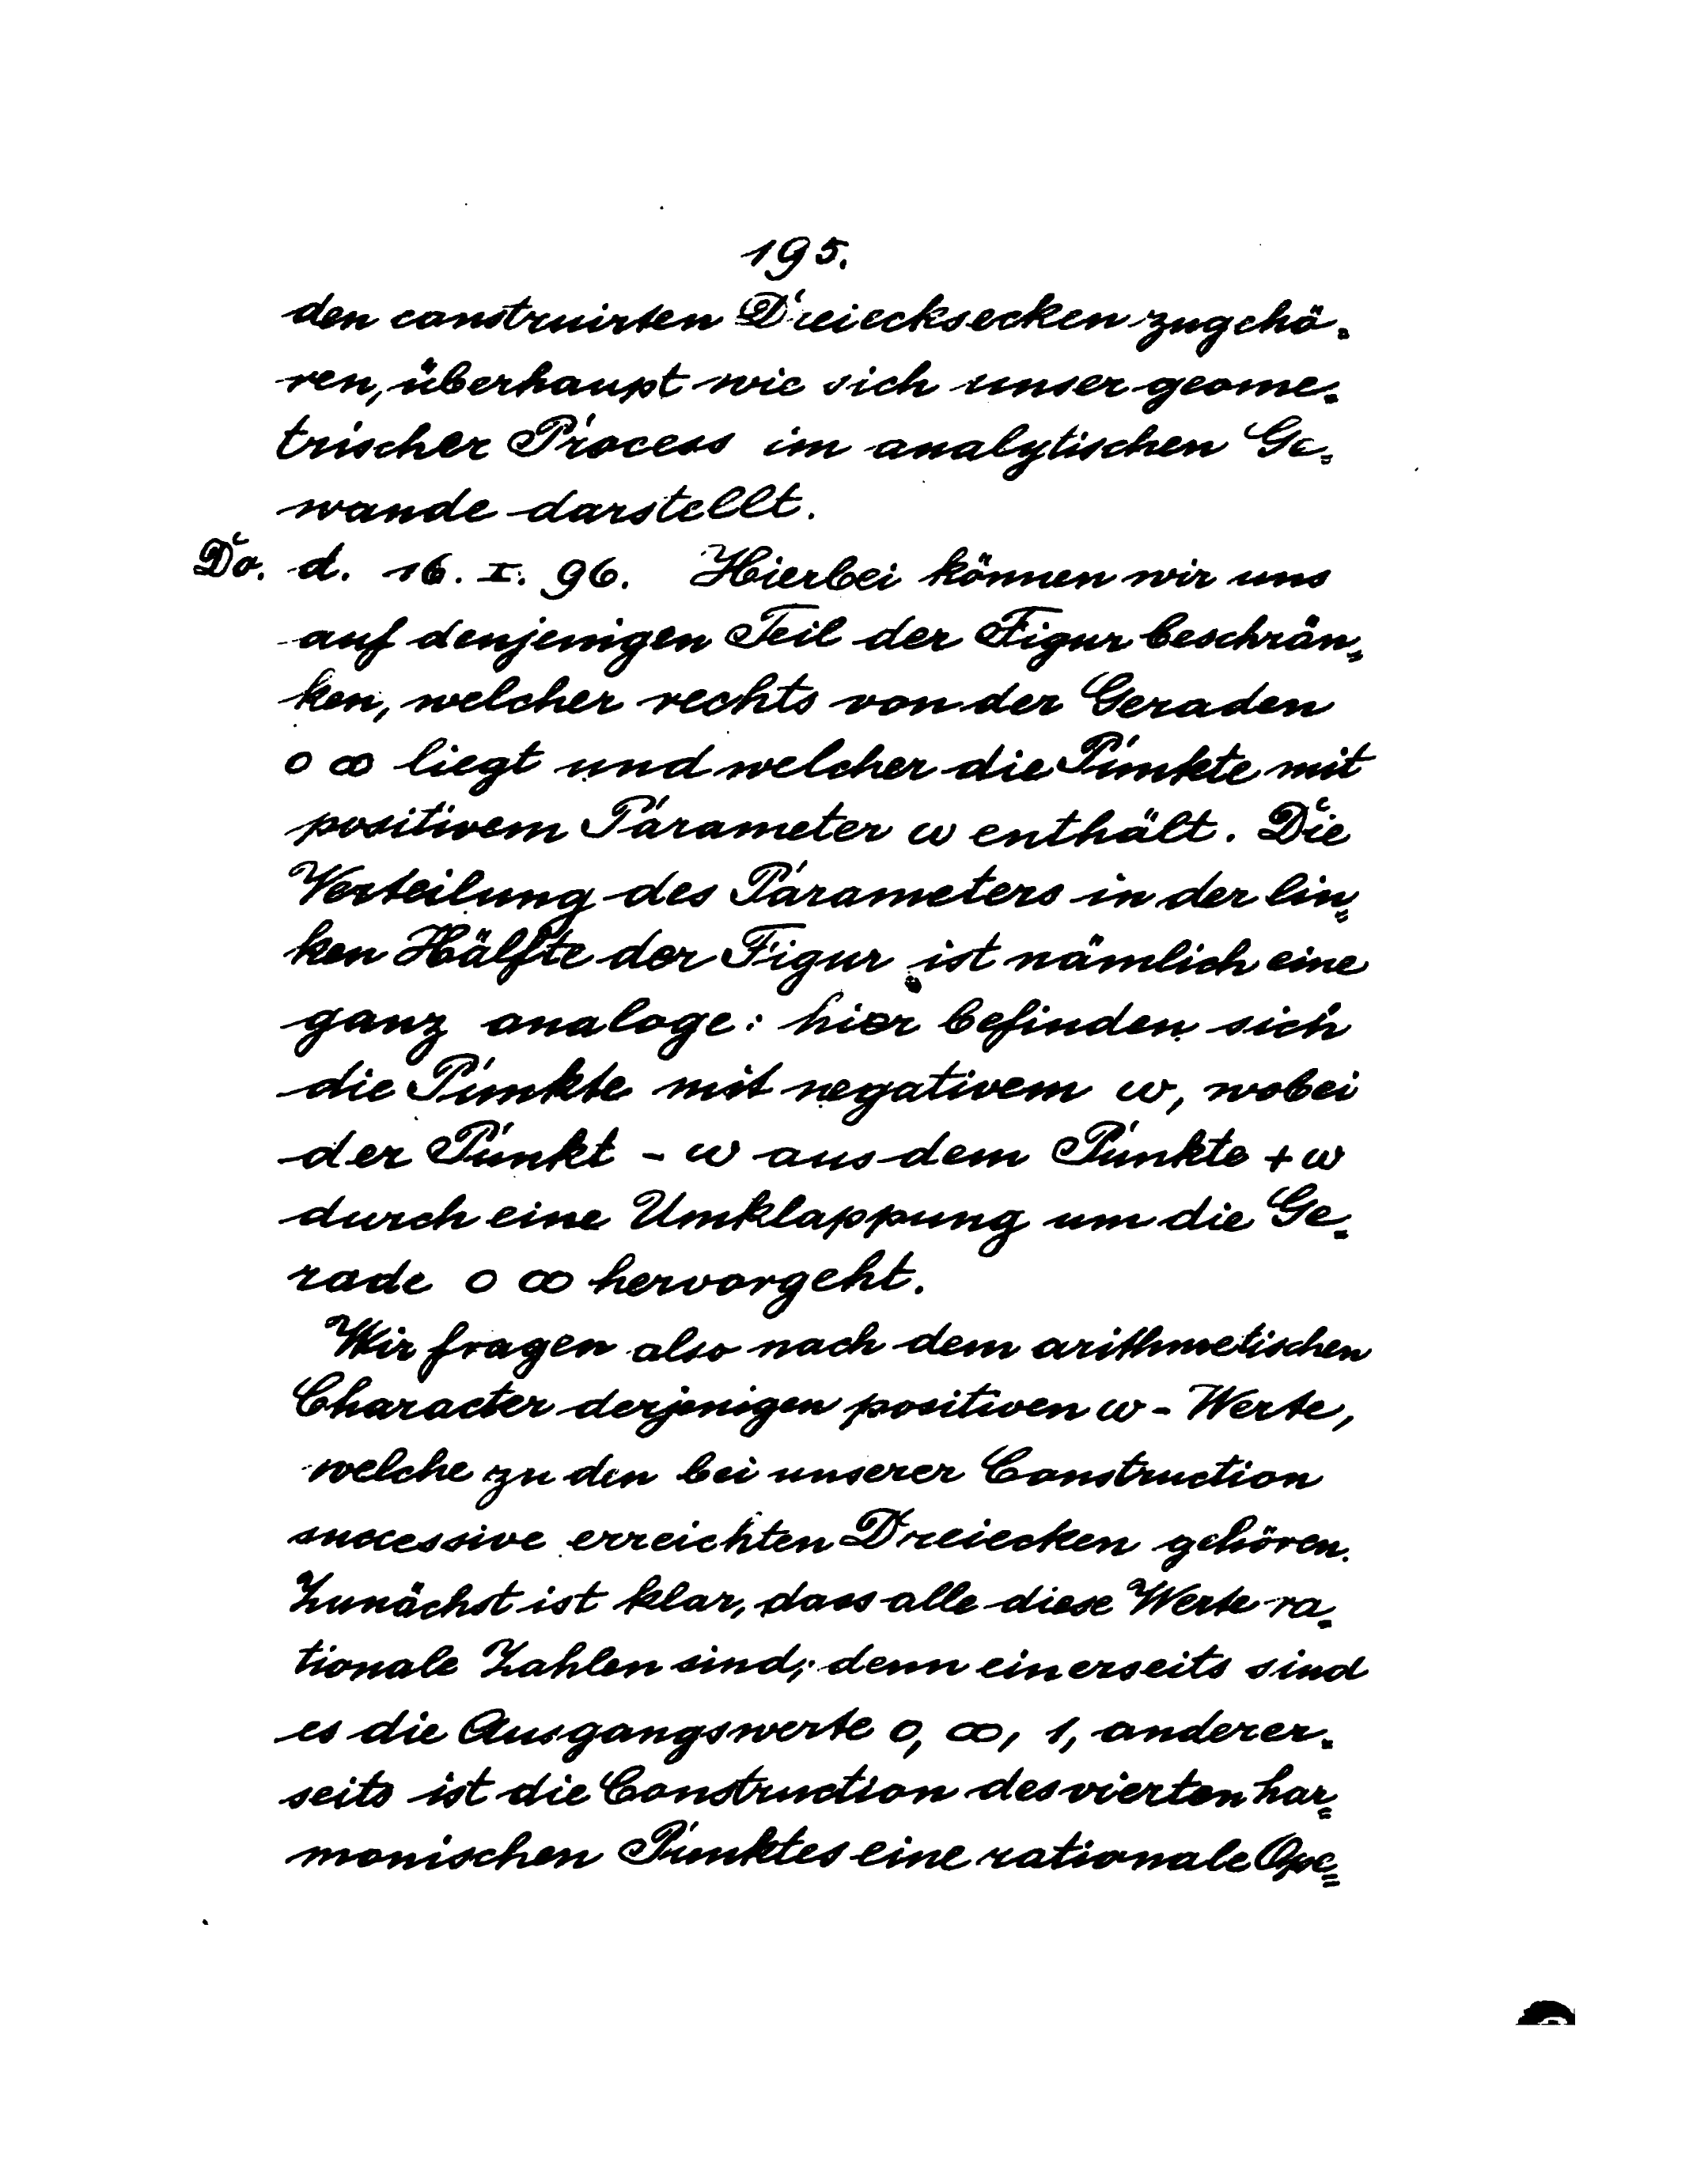 195.
den construirten Dreiecksecken zugehö-
ren, überhaupt wie sich unser geome-
trischer Process im analytischen Ge-
wande darstellt.
Do. d. 16. I. 96. Hierbei können wir uns
auf denjenigen Teil der Figur beschrän-
ken, welcher rechts von der Geraden
0 ∞ liegt und welcher die Punkte mit
positivem Parameter ω enthält. Die
Verteilung des Parameters in der lin-
ken Hälfte der Figur ist nämlich eine
ganz analoge: hier befinden sich
die Punkte mit negativem ω, wobei
der Punkt - ω aus dem Punkte + ω
durch eine Umklappung um die Ge-
rade 0 ∞ hervorgeht.
Wir fragen also nach dem arithmetischen
Character derjenigen positiven ω - Werte,
welche zu den bei unserer Construction
successive erreichten Dreiecken gehören.
Zunächst ist klar, dass alle diese Werte ra-
tionale Zahlen sind; denn einerseits sind
es die Ausgangswerte 0, ∞, 1, anderer-
seits ist die Construction des vierten har-
monischen Punktes eine rationale Ope-